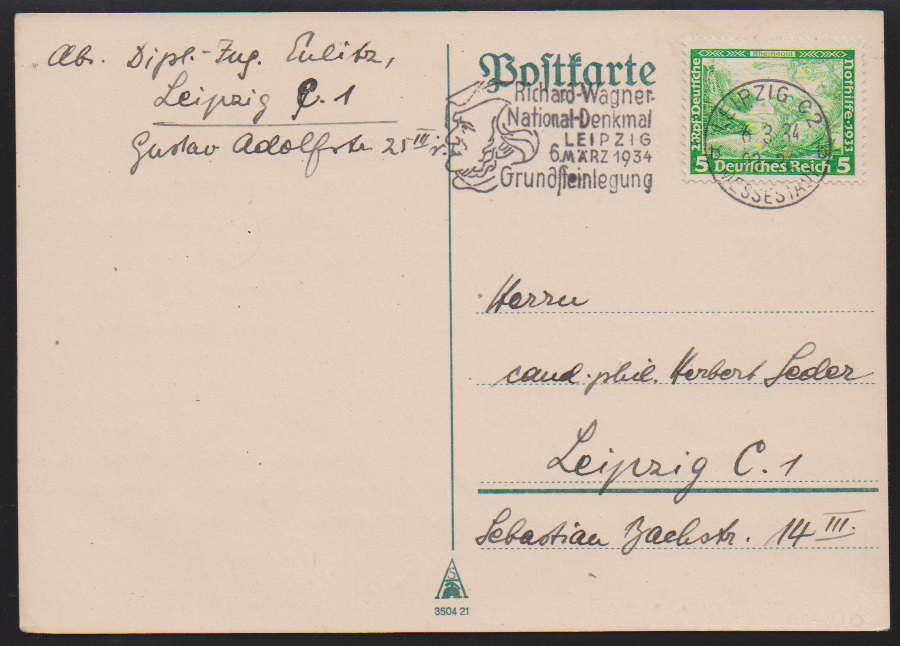 Abs. Dipl.-Ing. Eulitz,
Leipzig C. 1
Gustav Adolfstr. 25 III r.
Postkarte
Richard-Wagner-
National-Denkmal
LEIPZIG
6. MÄRZ 1934
Grundsteinlegung
Rheingold
2+2Rpf·Deutsche
Nothilfe·1933
5 Deutsches Reich 5
LEIPZIG C 2
6.3.34
MESSESTADT
Herrn
cand. phil. Herbert Seder
Leipzig C. 1
Sebastian Bachstr. 14 III.
S
3504 21